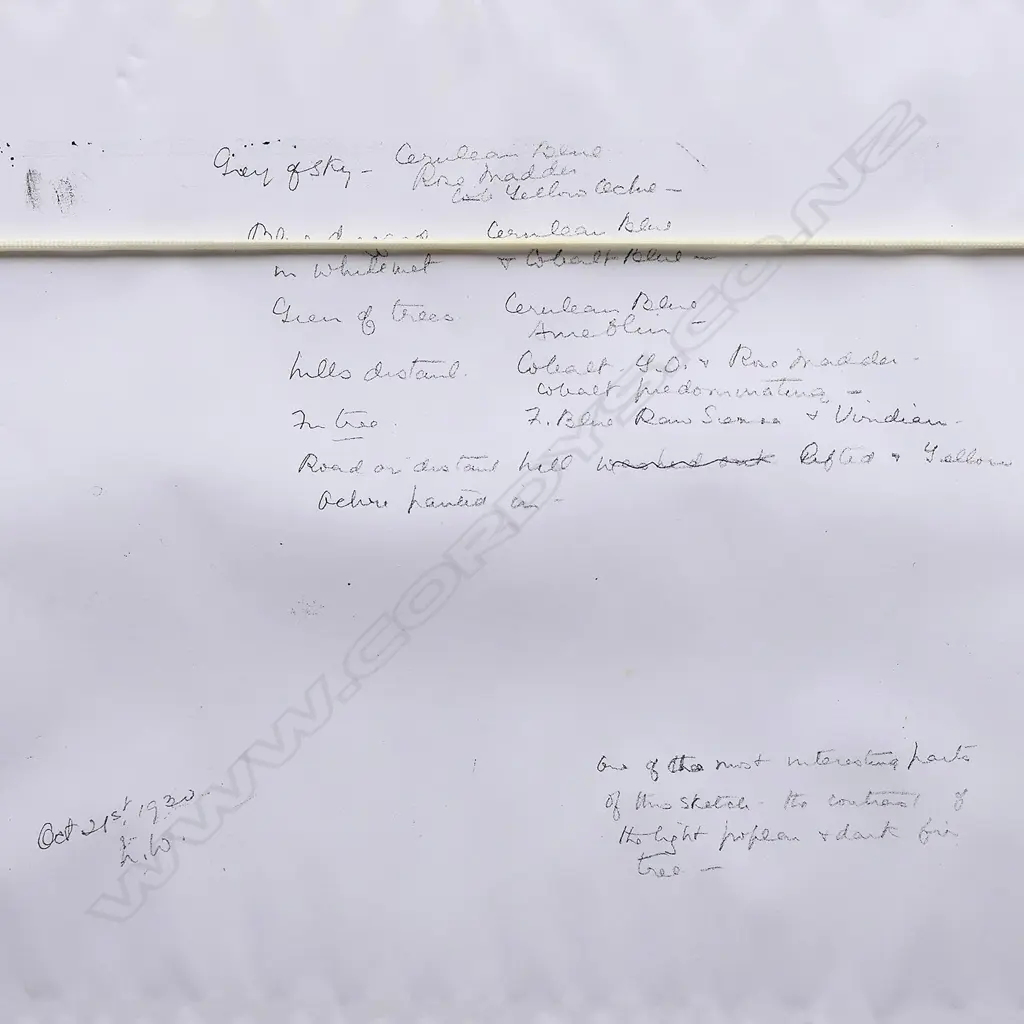 Grey of sky - Cerulean Blue
Rose Madder
Yellow Ochre -
Cerulean Blue
in & Cobalt Blue -
Green of trees Cerulean Blue
hills distant. Cobalt Y.O. & Rose Madder -
cobalt predominating -
Fir tree. F. Blue Raw Sienna & Viridian -
Road on distant hill washed out lifted & Yellow
Ochre painted in -
One of the most interesting parts
of this sketch - the contrast of
the light poplar & dark fir
tree -
Oct 21st, 1930
L.W.
WWW.CORDYS.CO.NZ